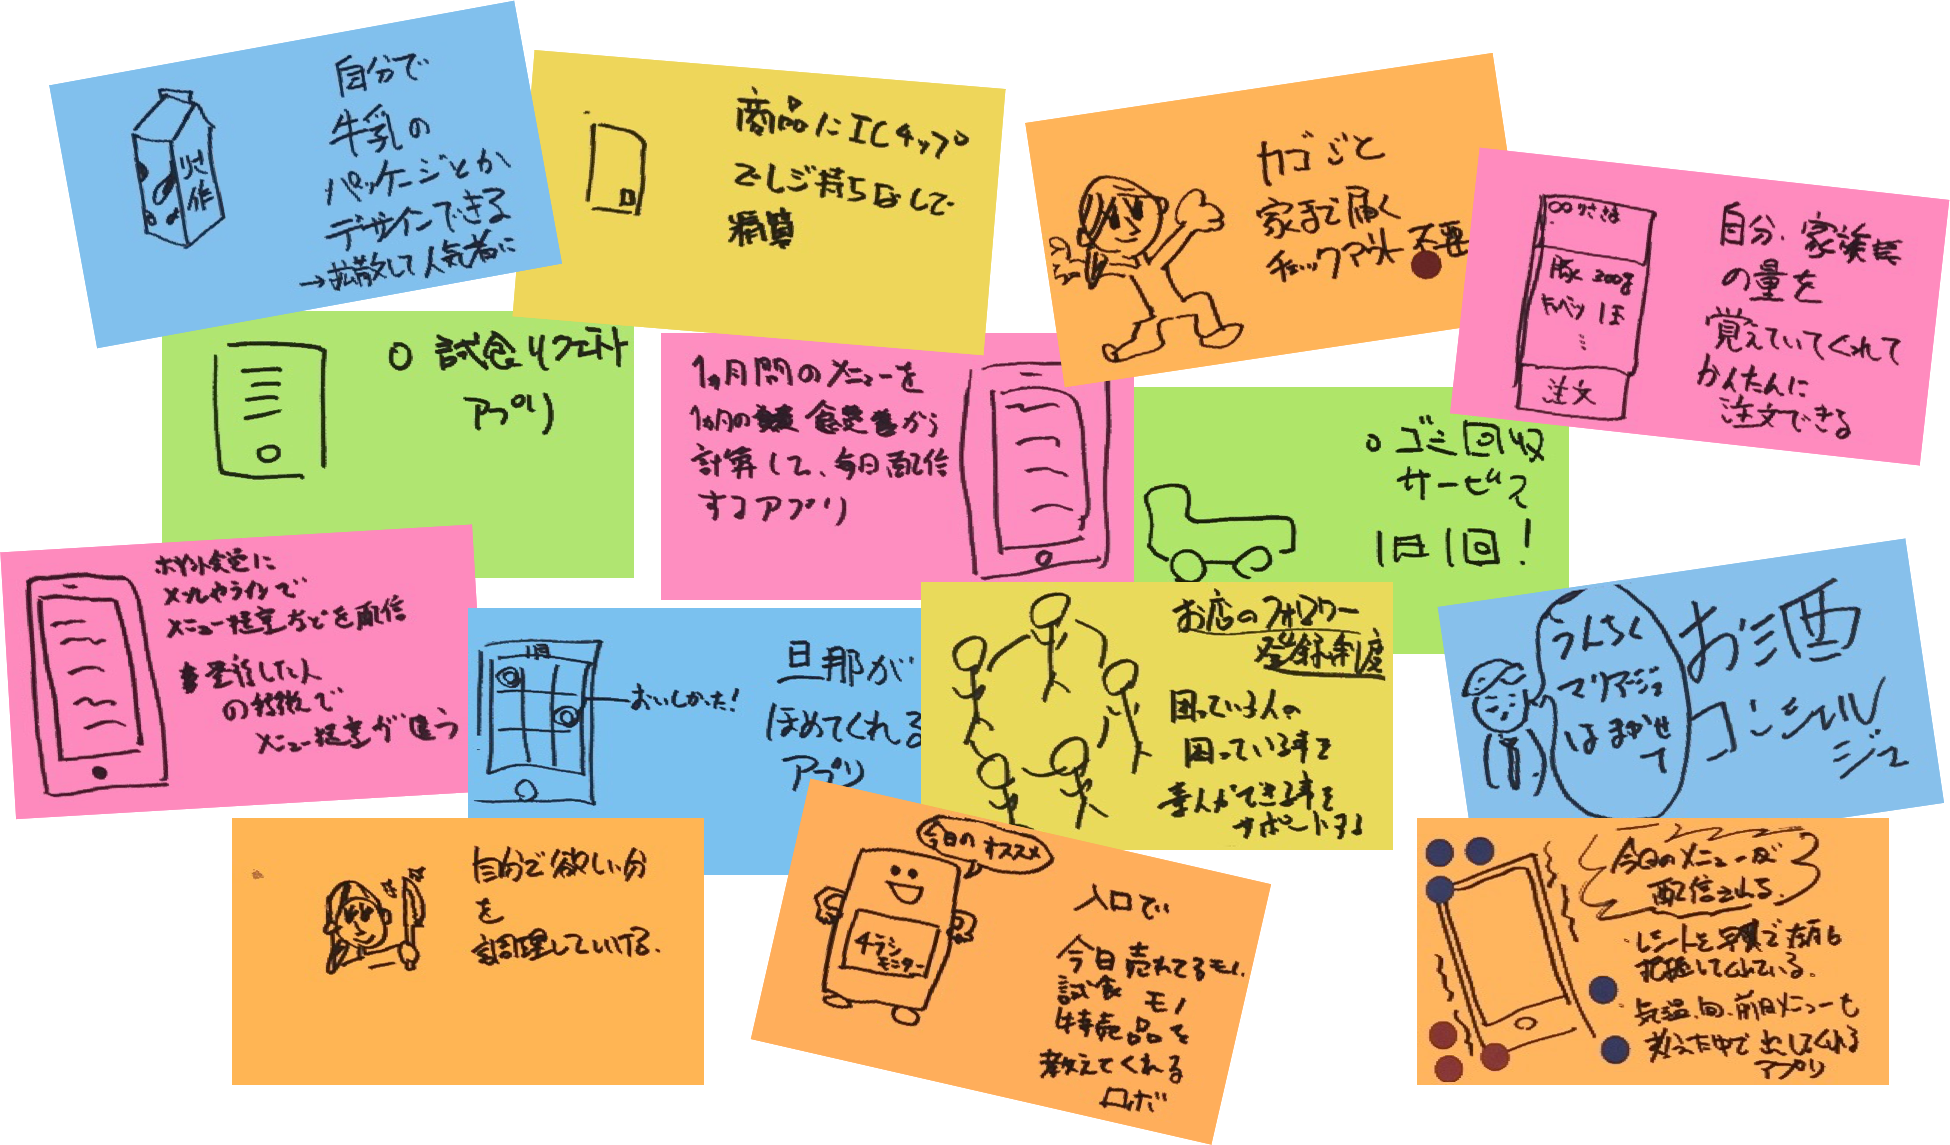 自分で
牛乳の
パッケージとか
デザインできる
→拡散して人気者に
商品にICチップ
でレジ待ちなしで
精算
カゴごと
家まで届く
チェックアウト不要
○○のささな
豚 200g
キャベツ 1玉
注文
自分、家族
の量を
覚えていてくれて
かんたんに
注文できる
○ 試食リクエスト
アプリ
1ヵ月間のメニューを
1ヵ月の
から
計算して、毎日配信
するアプリ
○ゴミ回収
サービス
1日1回!
メールやラインで
メニュー提案などを配信
受信した人
の特徴で
メニュー提案が違う
1月
おいしかった!
旦那が
ほめてくれる
アプリ
お店のフォロワー
登録制度
困っている人の
困っている事を
その人ができる事を
サポートする
うんちく
マリアージュ
はまかせ
て
お酒
コンシェル
ジュ
自分で欲しい分
を
調理していける。
今日のオススメ
チラシ
モニター
入口で
今日売れてるモノ、
試食モノ
特売品を
教えてくれる
ロボ
今日のメニューが
配信される。
・レシートを写真で在庫も
把握してくれている。
・気温、旬、前日メニューも
考えた中で出してくれる
アプリ